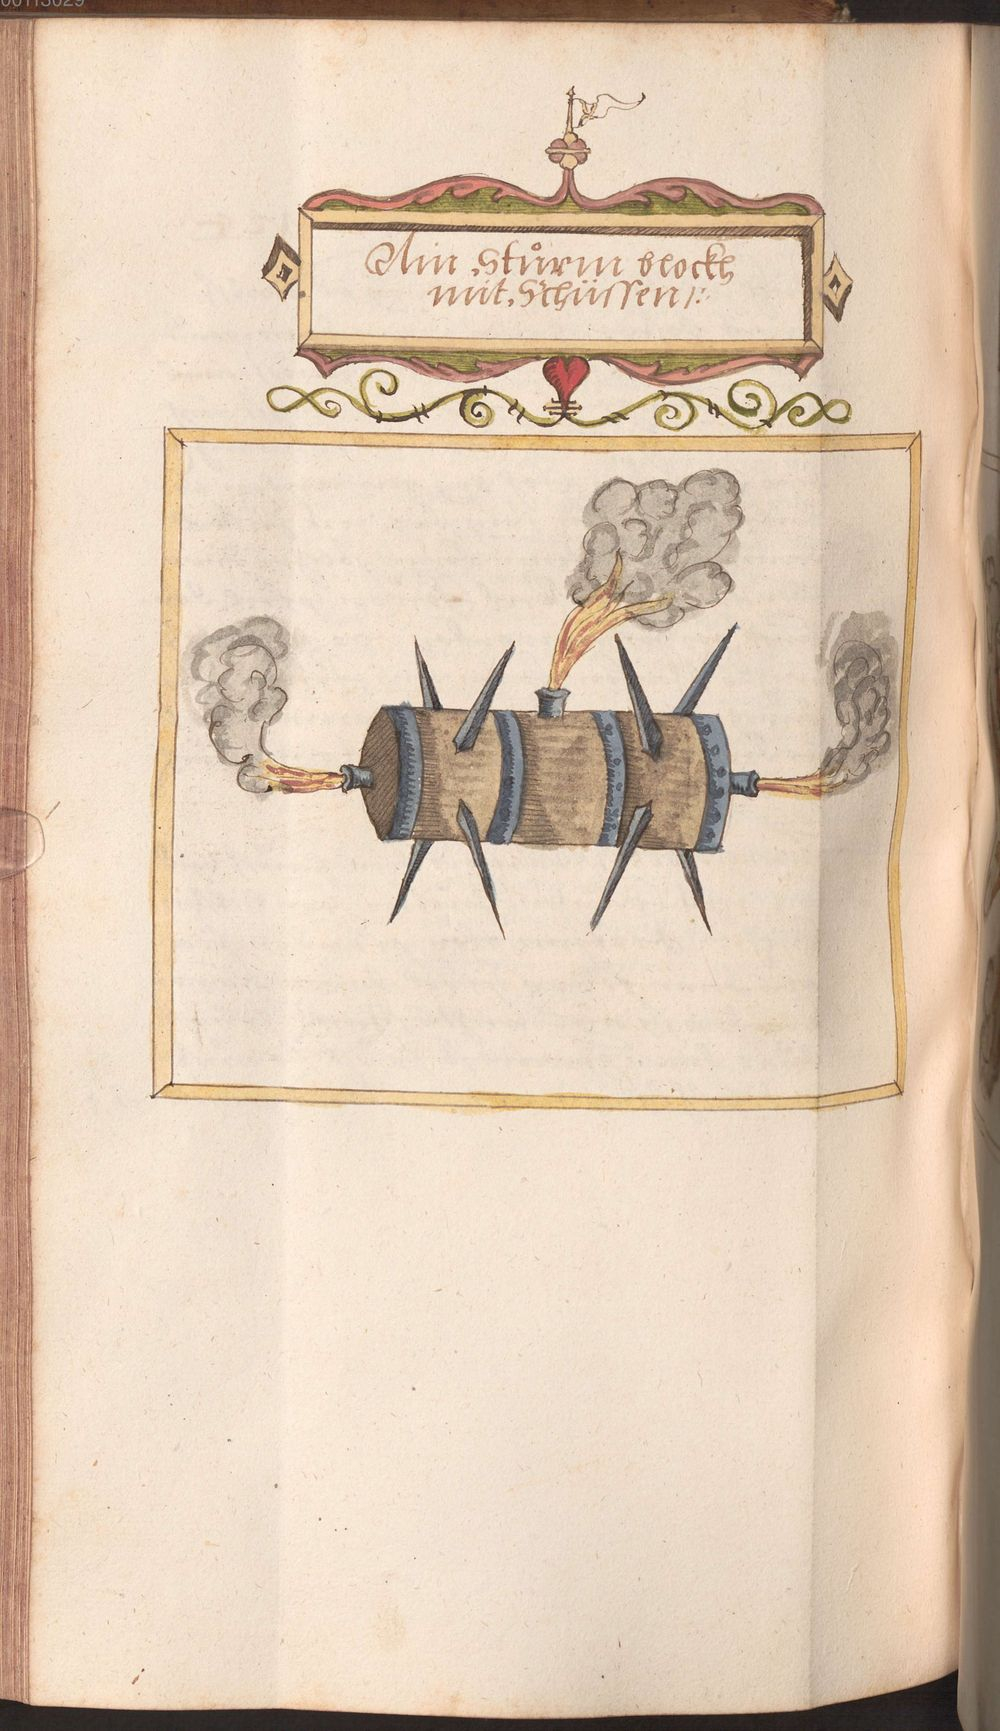 Ain Stůrm blockh
mit Schüssen :